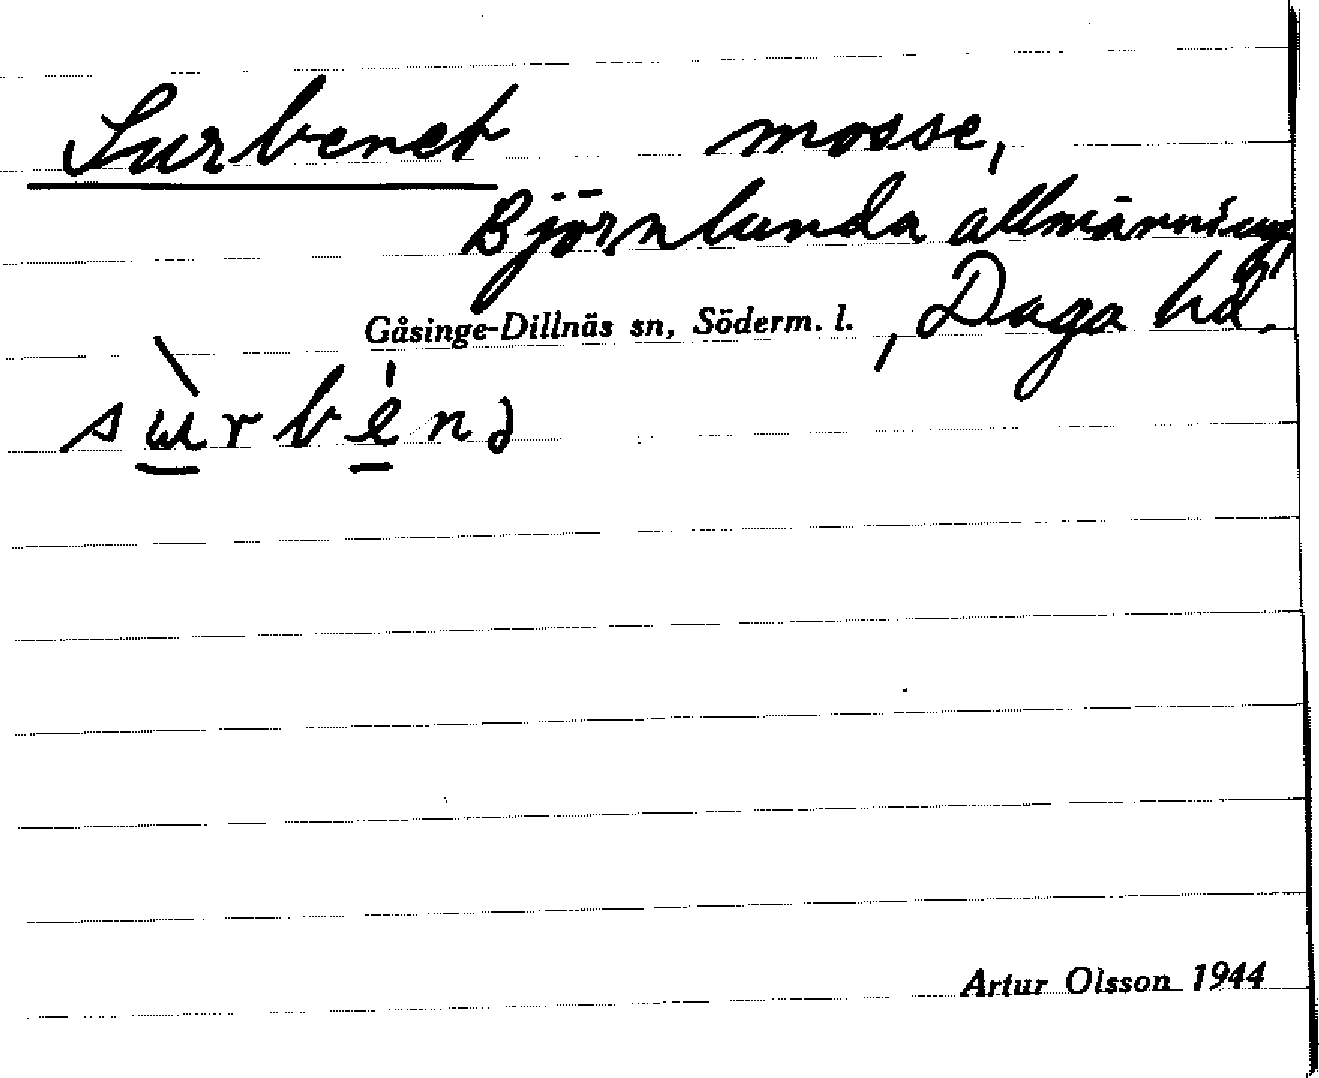 Surbenet mosse,
Björnlunda allmänning,
Gåsinge-Dillnäs sn, Söderm. l. , Daga hd.
sùrbénə
Artur Olsson 1944